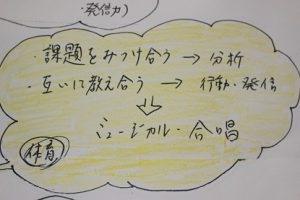 ・発信力)
・課題をみつけ合う → 分析
・互いに教え合う → 行動・発信
⇩
ミュージカル・合唱
体育